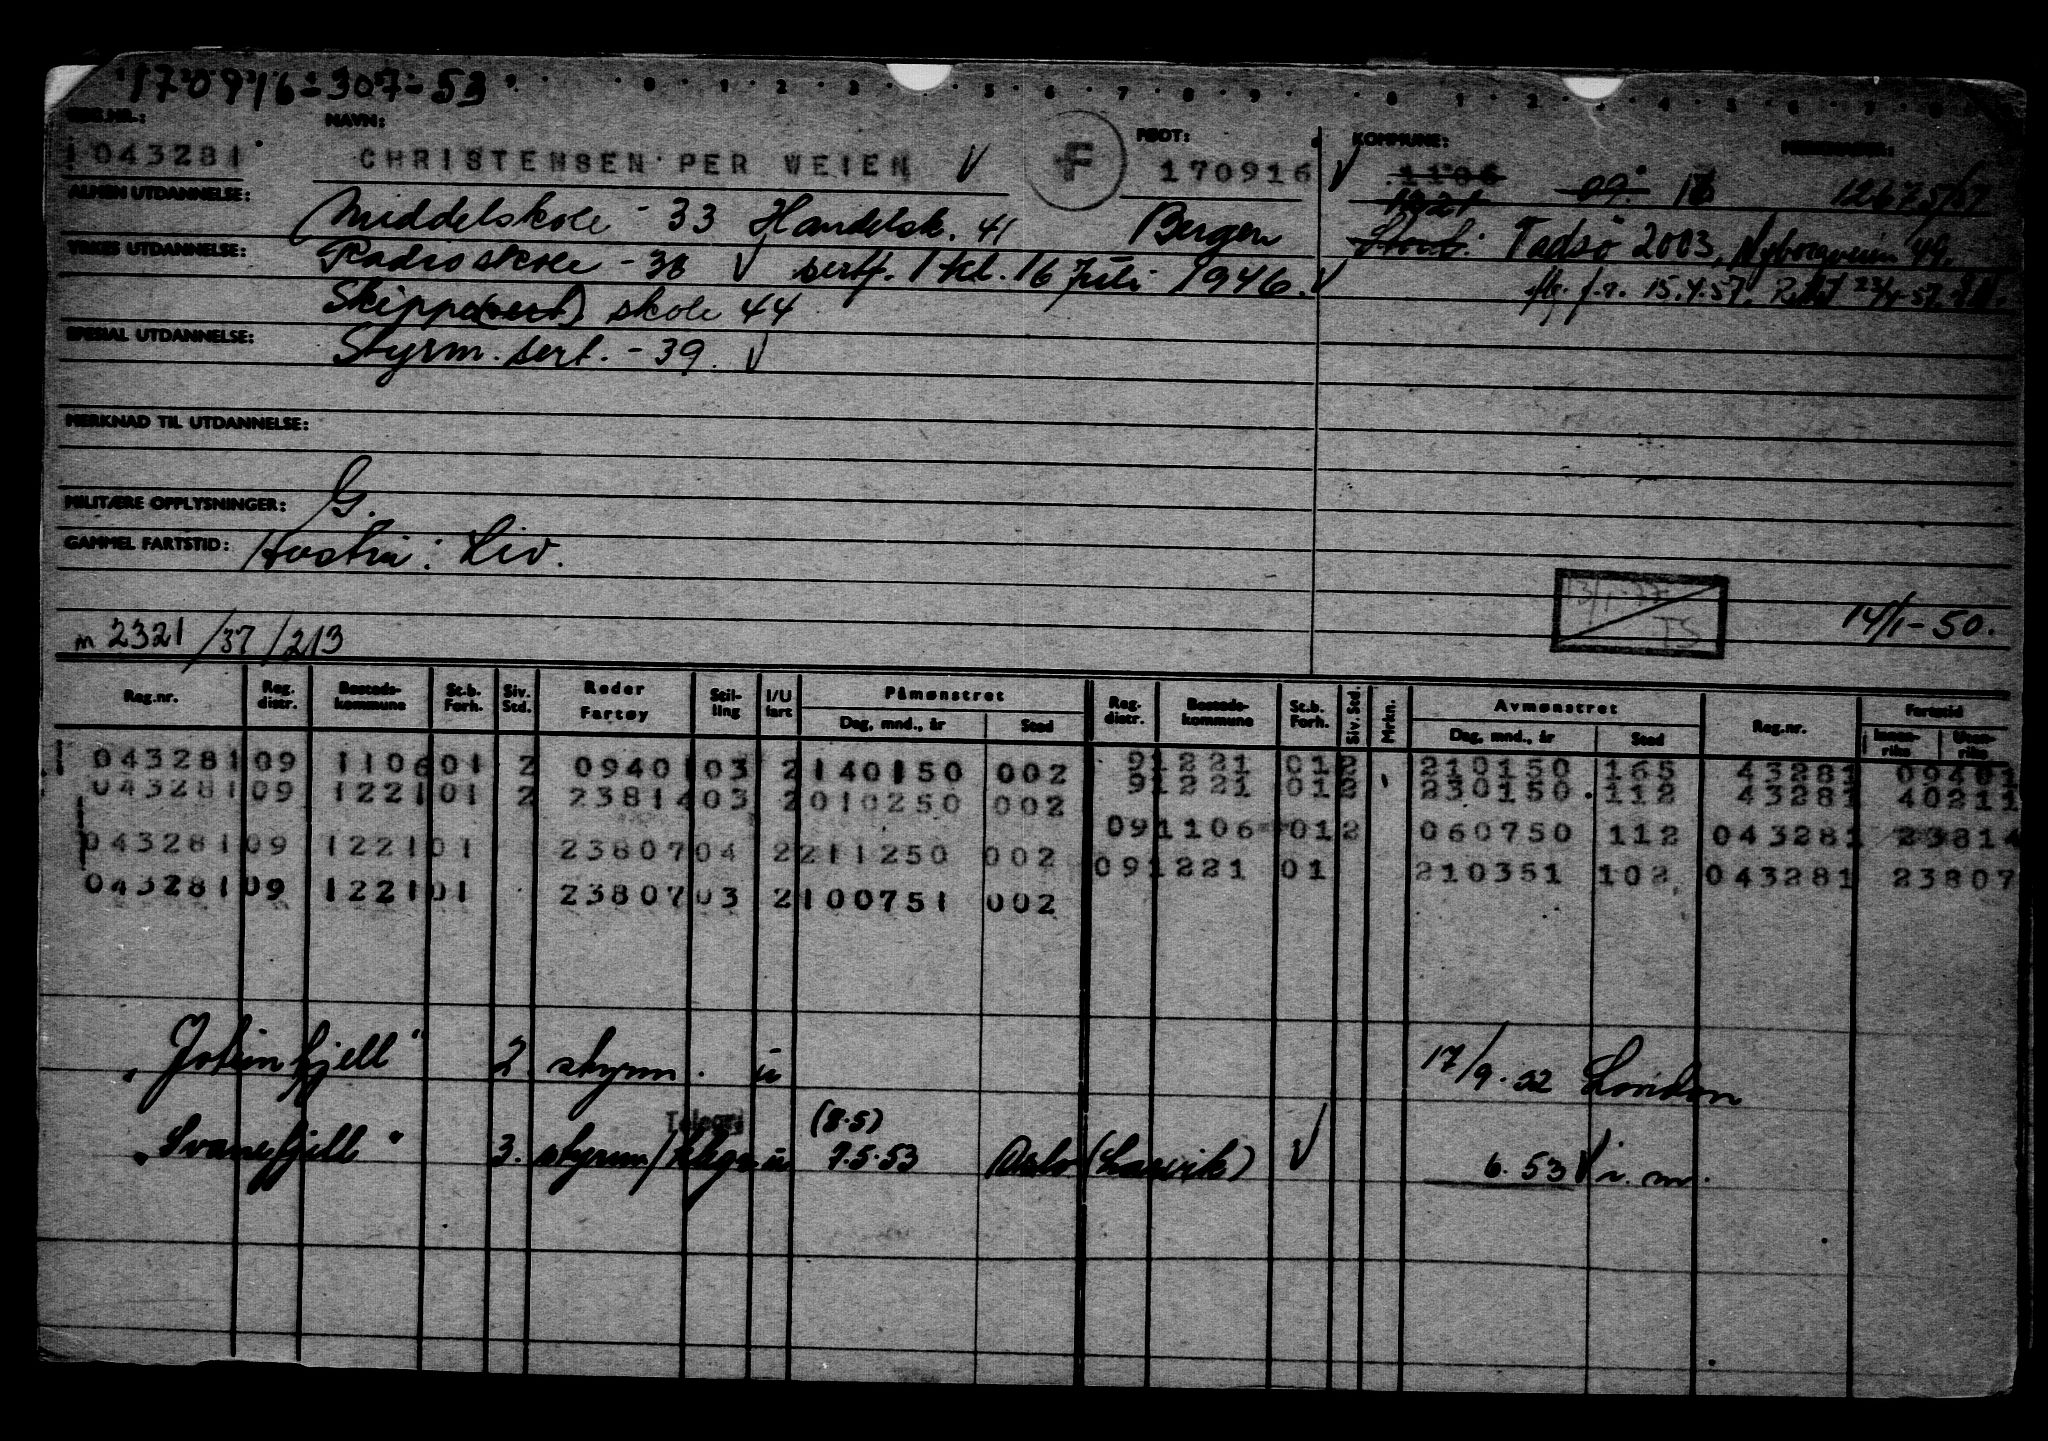 170916-307-53
0 1 2 3 5 6 7 8 9 0 1 2 4 5 6 7
REG.NR.: NAVN: FØDT: KOMMUNE:
1043281 CHRISTENSEN PER WEIEN V F 170916 V 1106 09. 16 12675/57
1221
ALMEN UTDANNELSE: Middelskole - 33 Handelsk. 41 Bergen Stord. Vadsö 2003, Nyborgveien 49.
YRKES UTDANNELSE: Radioskole - 38 V sertf. 1 kl. 16 Juli 1946. V flg. f.r. 15.4.57.
Skipper(sert) skole 44
SPESIAL UTDANNELSE: Styrm. sert. - 39. V
MERKNAD TIL UTDANNELSE:
MILITÆRE OPPLYSNINGER: G.
GAMMEL FARTSTID: Hustru: Liv.
TS
14/1-50.
m 2321/37/213
Reg.nr. Reg. distr. Bosteds-kommune St.b. Forh. Siv. Std. Reder Fartøy Stil-ling I/U fart Påmønstret Dag, mnd., år Sted Reg. distr. Bosteds-kommune St.b. Forh. Siv. Std. Mrkn. Avmønstret Dag, mnd., år Sted Reg.nr. Fartstid Innen-riks Uten-riks
043281 09 1106 01 2 09401 03 2 140150 002 9 1221 01 2 210150 165 43281 09401
043281 09 1221 01 2 23814 03 2 010250 002 9 1221 01 2 230150 112 43281 40211
09 1106 01 2 060750 112 043281 23814
043281 09 1221 01 23807 04 2 211250 002 09 1221 01 210351 102 043281 23807
043281 09 1221 01 23807 03 2 100751 002
"Jotunfjell" 2. styrm. u 17/9.52 London
Telegr (8.5)
"Svanefjell" 3. styrm/ u 7.5.53 Oslo (Larvik) V 6.53 V i. m.